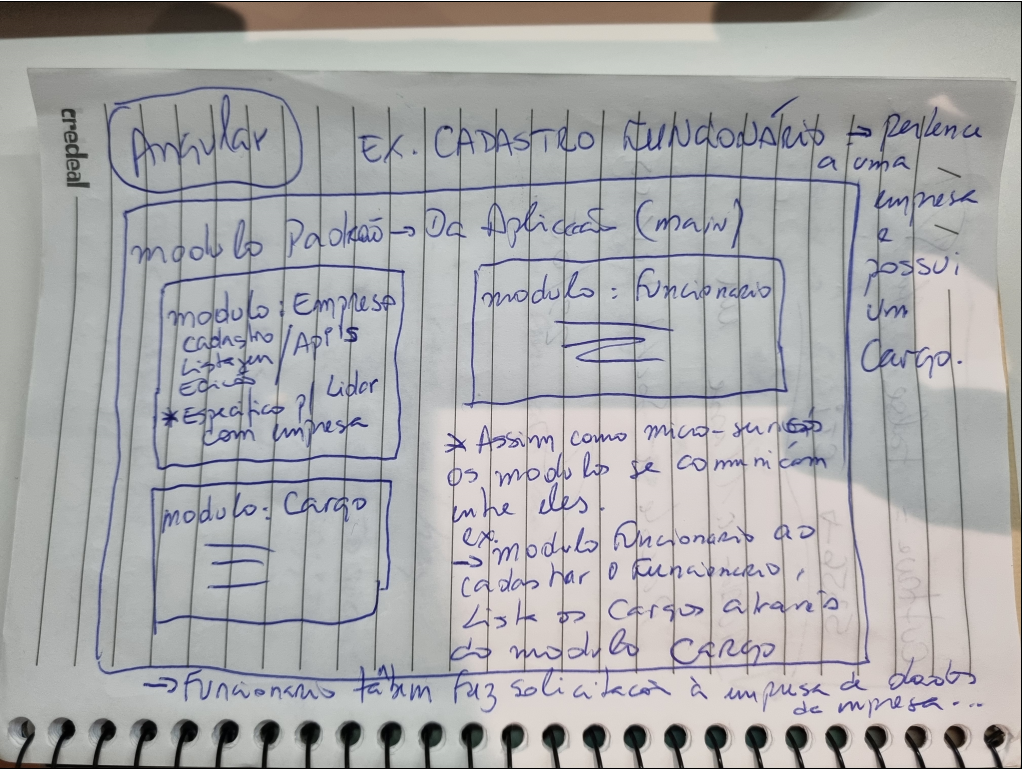 credeal
Angular
EX. CADASTRO FUNCIONÁRIO → pertence
a uma
empresa
e
possui
um
Cargo.
modulo Padrão → Da Aplicação (main)
modulo: Empresa
cadastro
Listagem / API's
Edição
* Específico p/ Lidar
com empresa
modulo: Funcionario
modulo: Cargo
* Assim como micro-serviços
os modulos se comunicam
entre eles.
ex.
→ modulo Funcionario ao
cadastrar o Funcionario,
Lista os Cargos através
do modulo CARGO
→ Funcionario também faz solicitação à empresa de dados
da empresa...